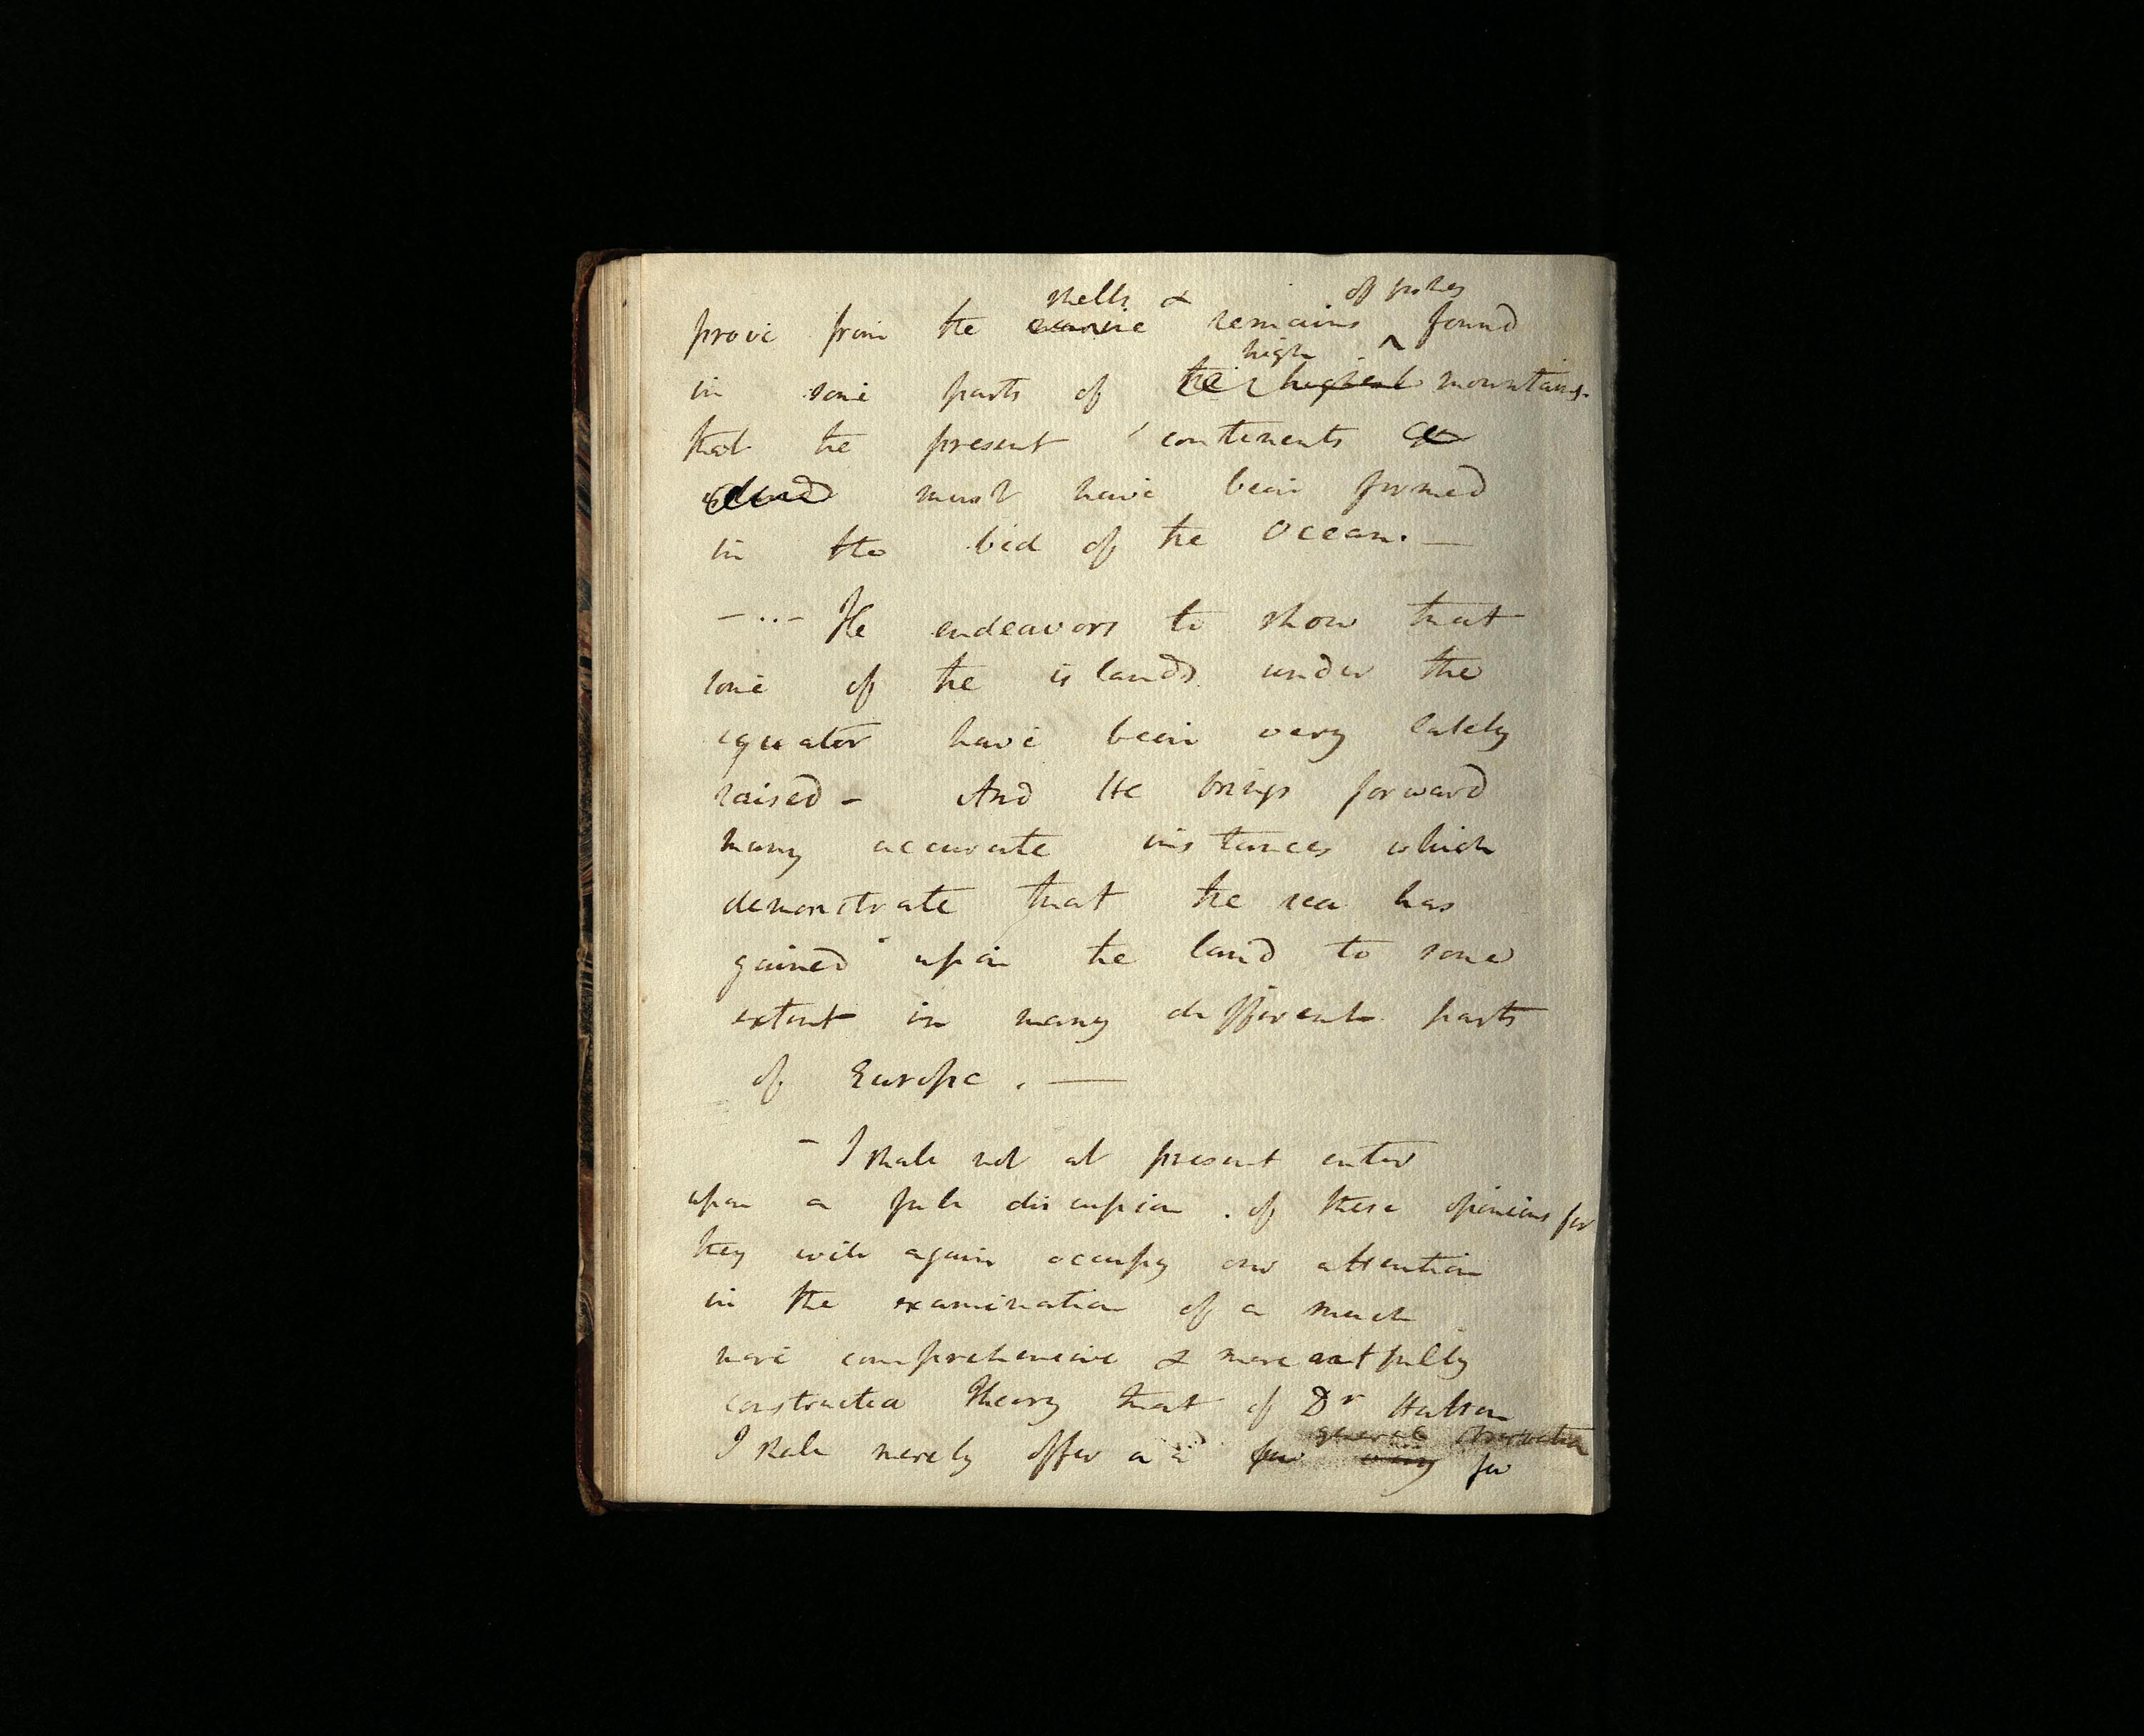 shells & of fishes
prove from the marine remains ^ found
high
in some parts of the highest mountains.
that the present continents
must have been formed
in the bed of the Ocean. —
— .. — He endeavors to show that
some of the islands under the
equator have been very lately
raised – And He brings forward
many accurate instances which
demonstrate that the sea has
gained upon the land to some
extent in many different parts
of Europe . —
– I shall not at present enter
upon a full discussion of these opinions for
they will again occupy our attention
in the examination of a much
more comprehensive & more artfully
constructed Theory that of Dr Hutton
general observation
I shall merely offer a few for